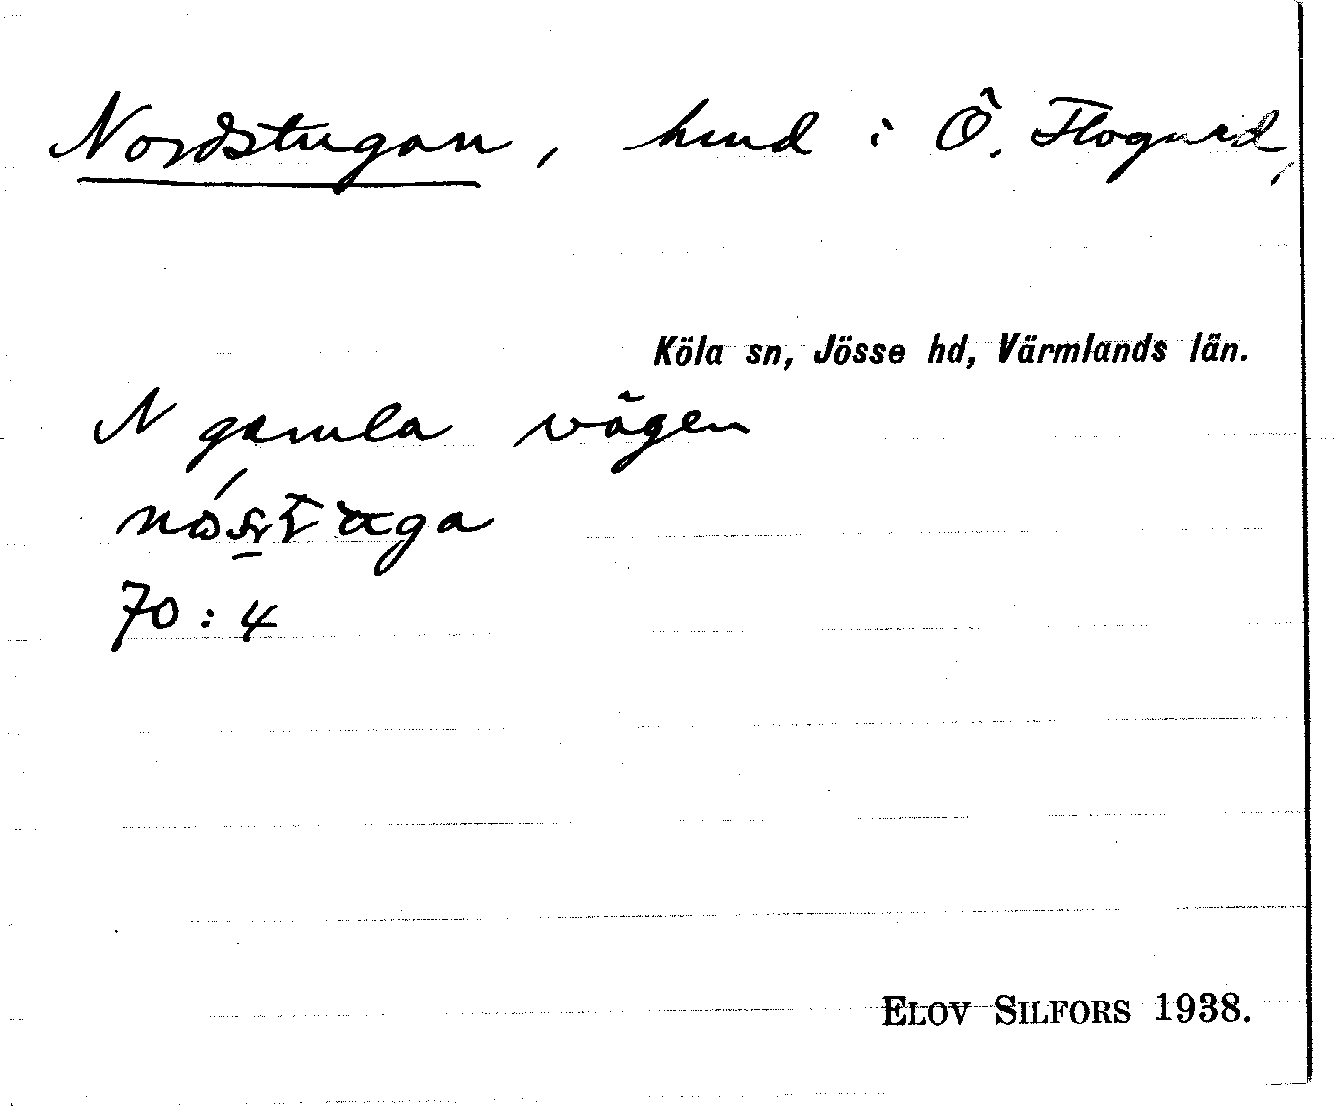 Nordstugan, hmd i Ö. Flogned,
Köla sn, Jösse hd, Värmlands län.
N gamla vägen
70:4
ELOV SILFORS 1938.